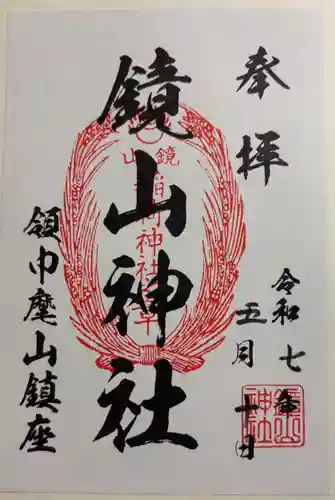 奉拝
令和七年
五月十日
鏡山神社
鏡山
稲荷神社
領巾麾山鎮座